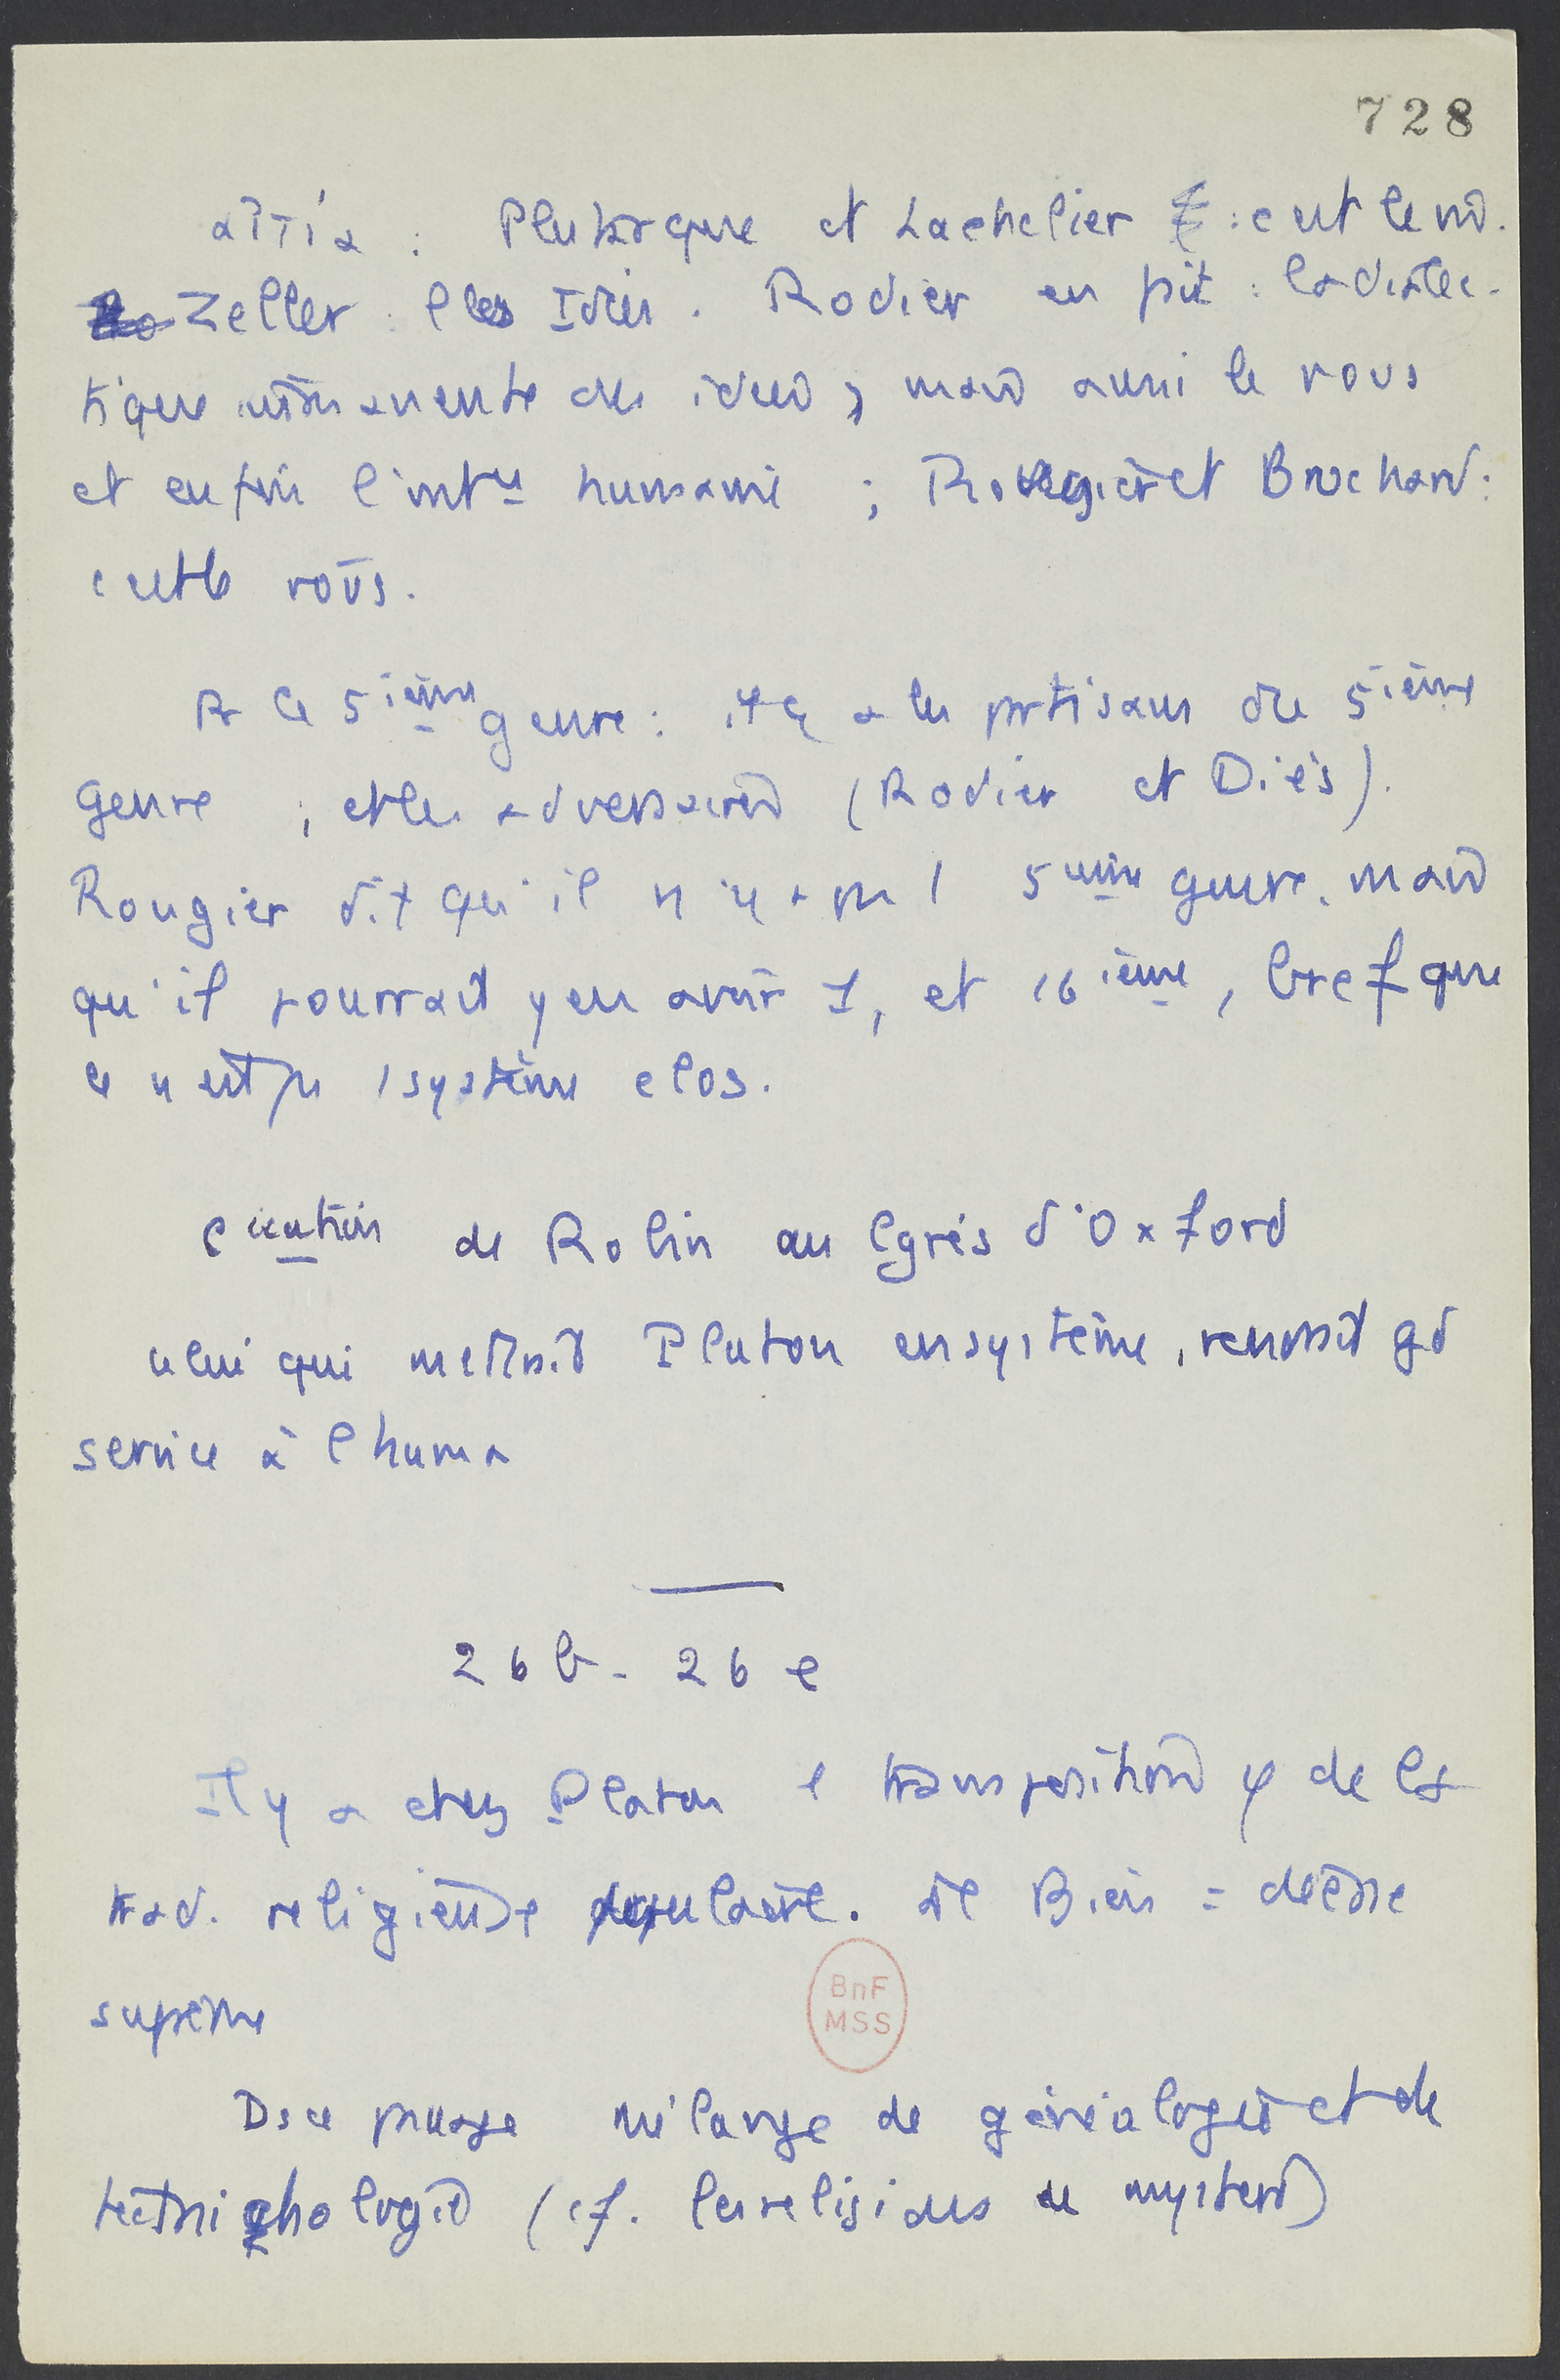 728
αἰτία : Plutarque et Lachelier : c'est le νο.
Zeller : les Idées. Rodier en fait : la dialec-
tique immanente des idées, mais aussi le νους
et enfin l'int humaine ; Rougier et Brochard :
c'est le νοῦς.
le 5ième genre : il y a les partisans du 5ième
genre ; et les adversaires (Rodier et Diès).
Rougier dit qu'il n'y a pas 1 5ième genre. mais
qu'il pourrait y en avoir 1, et 16ième, bref que
ce n'est pas 1 système clos.
de Robin au Cgrès d'Oxford
celui qui mettrait Platon en système, rendrait gd
service à l'huma
26 b - 26 e
Il y a chez Platon 1 transposition φ de la
trad. religieuse populaire. Le Bien = déesse
suprême
Ds ce passage mélange de généalogie et de
technichologie (cf. les religions de mystère)
BnF
MSS